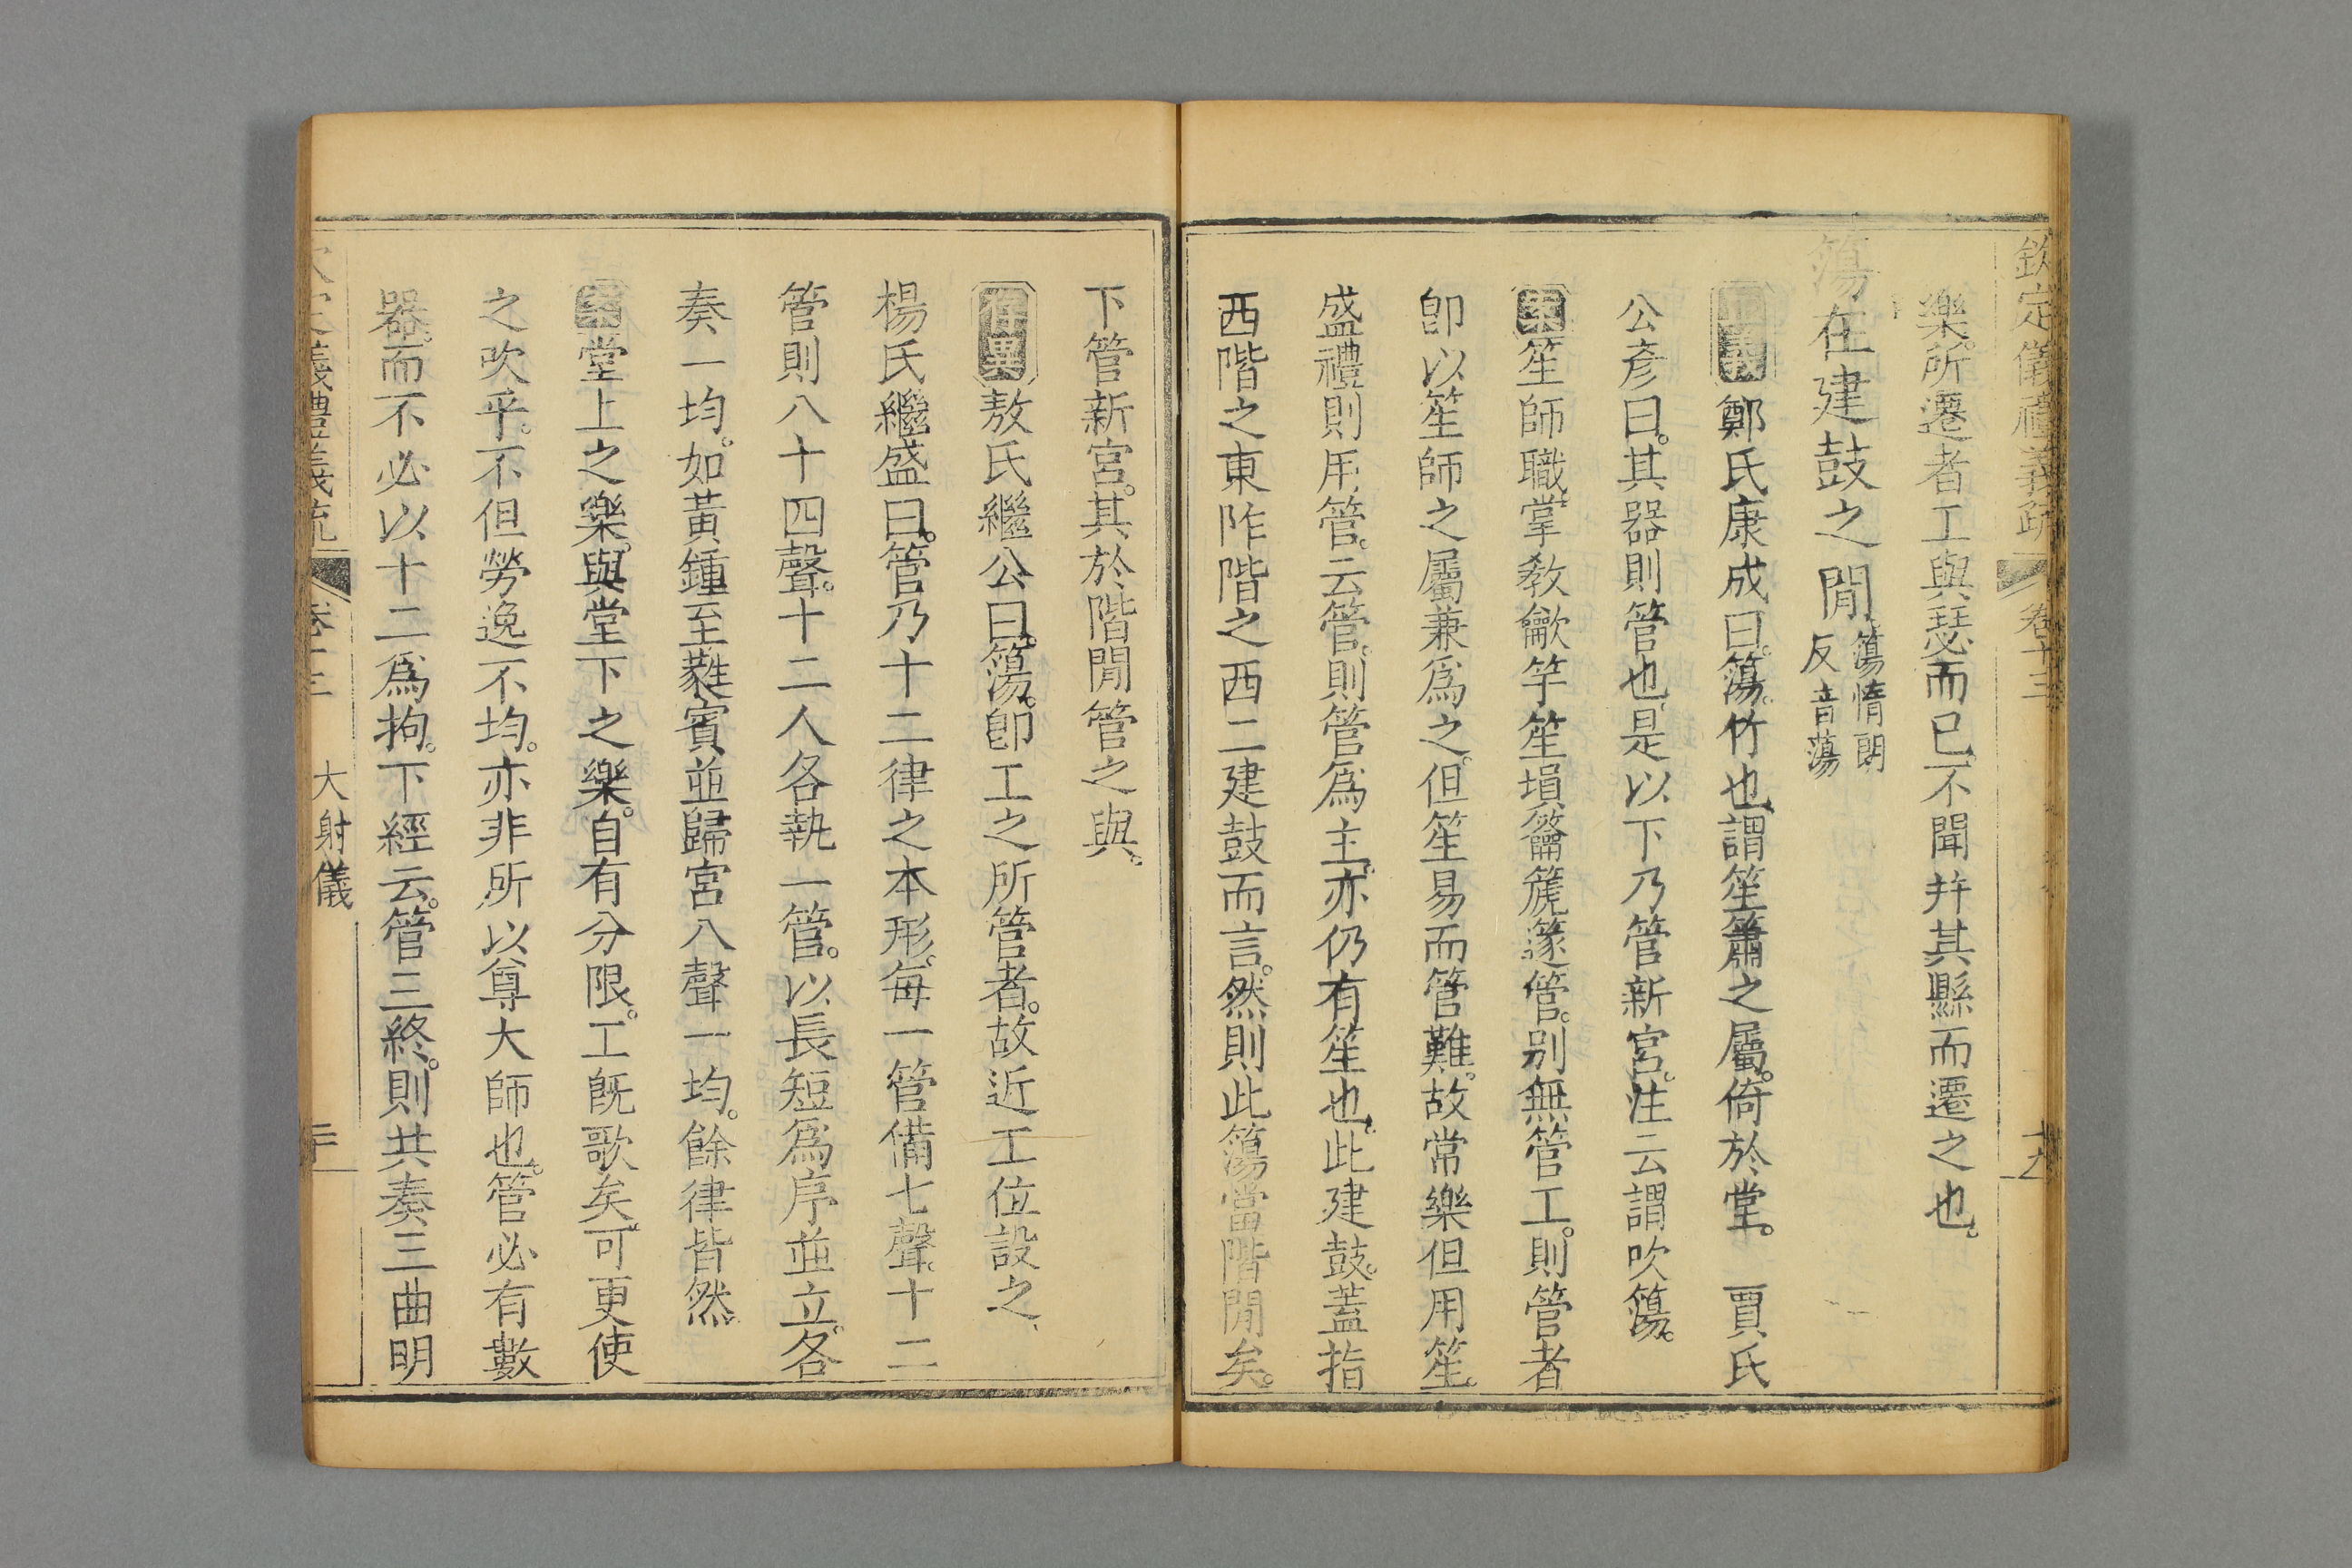 欽定儀禮義疏 卷十三 十九
樂。所遷者工與瑟而已。不聞并其縣而遷之也。
簜在建鼓之閒。簜惰朗反音蕩
正義鄭氏康成曰。簜。竹也。謂笙簫之屬。倚於堂。 賈氏
公彥曰。其器則管也。是以下乃管新宮。注云謂吹簜。
案笙師職掌敎龡竽笙塤籥篪篴管。別無管工。則管者
卽以笙師之屬兼爲之。但笙易而管難。故常樂但用笙。
盛禮則用管。云管。則管爲主。亦仍有笙也。此建鼓。蓋指
西階之東阼階之西二建鼓而言。然則此簜當階閒矣。
下管新宮。其於階閒管之與。
存異敖氏繼公曰。簜。卽工之所管者。故近工位設之。
楊氏繼盛曰。管乃十二律之本形。每一管備七聲。十二
管則八十四聲。十二人各執一管。以長短爲序並立。各
奏一均。如黃鍾至蕤賓並歸宮八聲一均。餘律皆然。
案堂上之樂。與堂下之樂。自有分限。工旣歌矣。可更使
之吹乎。不但勞逸不均。亦非所以尊大師也。管必有數
器。而不必以十二爲拘。下經云。管三終。則共奏三曲明
欽定儀禮義疏 卷十三 大射儀 二十